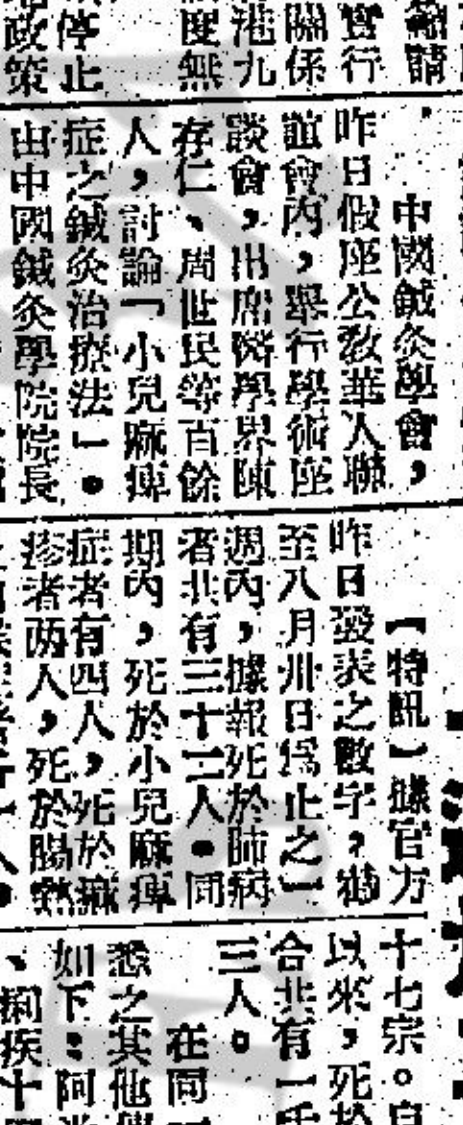 請
實行
關係
港九
度無
停止
政策
中國鍼灸學會，
昨日假座公教華人聯
誼會內，舉行學術座
談會，出席醫學界陳
存仁、周世民等百餘
人，討論「小兒麻痺
症之鍼灸治療法」。
由中國鍼灸學院院長
【特訊】據官方
昨日發表之數字，
至八月卅日爲止之一
週內，據報死於肺病
者共有三十二人。同
期內，死於小兒麻痺
症者有四人，死於痲
疹者两人，死於腸熱
十七宗。自
以來，死於
合共有一
三人。
在同
悉之其他
如下：阿
、痢疾十